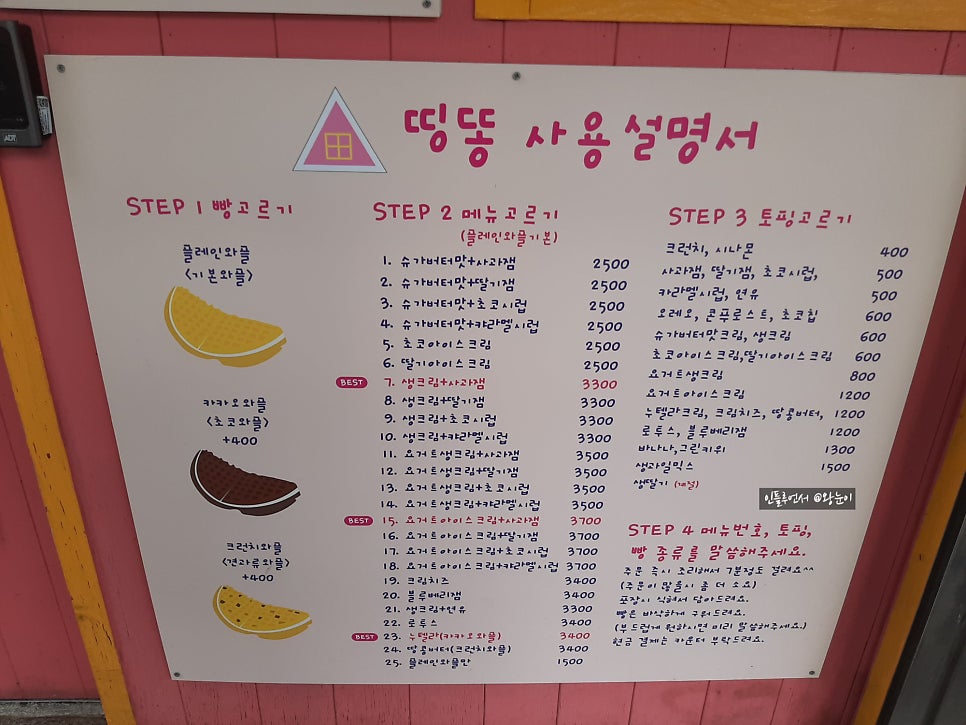 띵똥 사용설명서
STEP 1 빵고르기
플레인와플
<기본와플>
카카오와플
<초코와플>
+400
크런치와플
<견과류와플>
+400
STEP 2 메뉴고르기
(플레인와플기본)
1. 슈가버터맛+사과잼 2500
2. 슈가버터맛+딸기잼 2500
3. 슈가버터맛+초코시럽 2500
4. 슈가버터맛+캬라멜시럽 2500
5. 초코아이스크림 2500
6. 딸기아이스크림 2500
BEST 7. 생크림+사과잼 3300
8. 생크림+딸기잼 3300
9. 생크림+초코시럽 3300
10. 생크림+캬라멜시럽 3300
11. 요거트생크림+사과잼 3500
12. 요거트생크림+딸기잼 3500
13. 요거트생크림+초코시럽 3500
14. 요거트생크림+캬라멜시럽 3500
BEST 15. 요거트아이스크림+사과잼 3700
16. 요거트아이스크림+딸기잼 3700
17. 요거트아이스크림+초코시럽 3700
18. 요거트아이스크림+캬라멜시럽 3700
19. 크림치즈 3400
20. 블루베리잼 3400
21. 생크림+연유 3300
22. 로투스 3400
BEST 23. 누텔라(카카오와플) 3400
24. 땅콩버터(크런치와플) 3400
25. 플레인와플만 1500
STEP 3 토핑고르기
크런치, 시나몬 400
사과잼, 딸기잼, 초코시럽, 500
카라멜시럽, 연유 500
오레오, 콘푸로스트, 초코칩 600
슈가버터맛크림, 생크림 600
초코아이스크림,딸기아이스크림 600
요거트생크림 800
요거트아이스크림
누텔라크림, 크림치즈, 땅콩버터, 1200
로투스, 블루베리잼 1200
바나나,그린키위 1300
생과일믹스 1500
생딸기 (계절)
인플루언서 @왕눈이
STEP 4 메뉴번호, 토핑,
빵 종류를 말씀해주세요.
주문 즉시 조리해서 7분정도 걸려요^^
(주문이 많을시 좀 더 소요)
포장시 식혀서 담아드려요.
빵은 바삭하게 구워드려요.
(부드럽게 원하시면 미리 말씀해주세요.)
현금 결제는 카운터 부탁드려요.
ADT